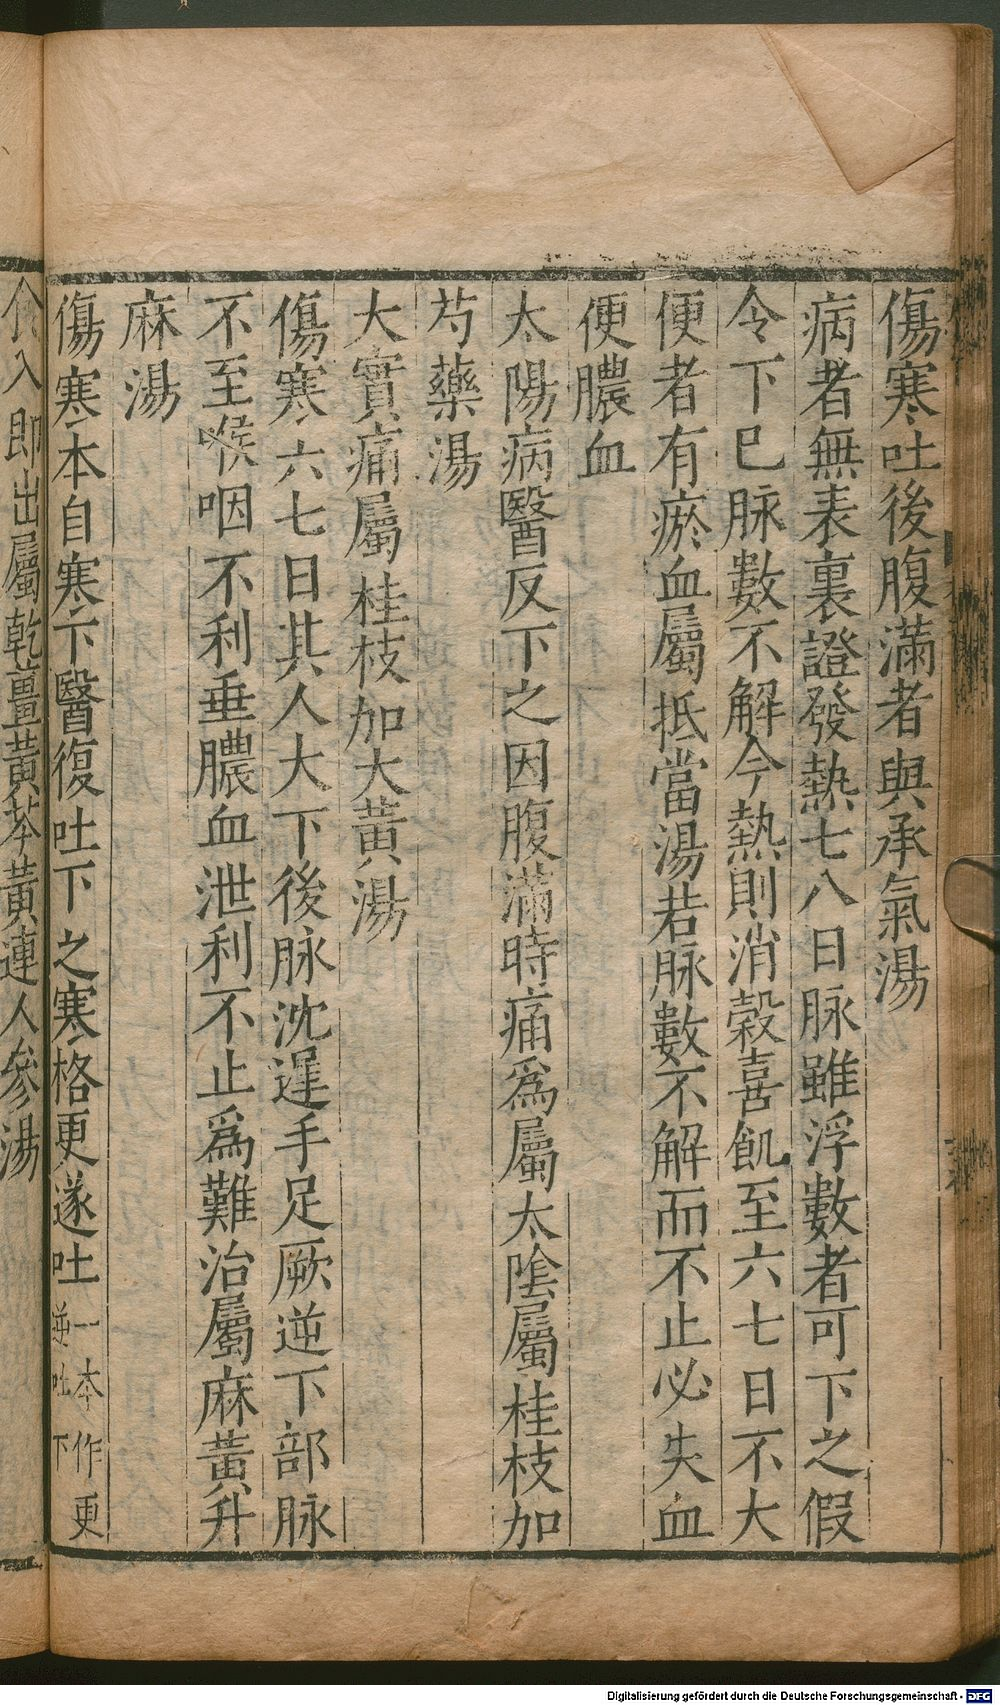 傷寒吐後腹滿者與承氣湯
病者無表裏證發熱七八日脉雖浮數者可下之假
令下巳脉數不解今熱則消穀喜飢至六七日不大
便者有瘀血屬抵當湯若脉數不解而不止必失血
便膿血
太陽病醫反下之因腹滿時痛爲屬太陰屬桂枝加
芍藥湯
大實痛屬桂枝加大黃湯
傷寒六七日其人大下後脉沈遲手足厥逆下部脉
不至喉咽不利垂膿血泄利不止爲難治屬麻黃升
麻湯
傷寒本自寒下醫復吐下之寒格更遂吐一本作更逆吐下
食入即出屬乾薑黃芩黃連人參湯
Digitalisierung gefördert durch die Deutsche Forschungsgemeinschaft - DFG